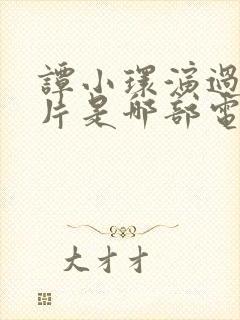 譚小環演過
片是哪部電
大才才